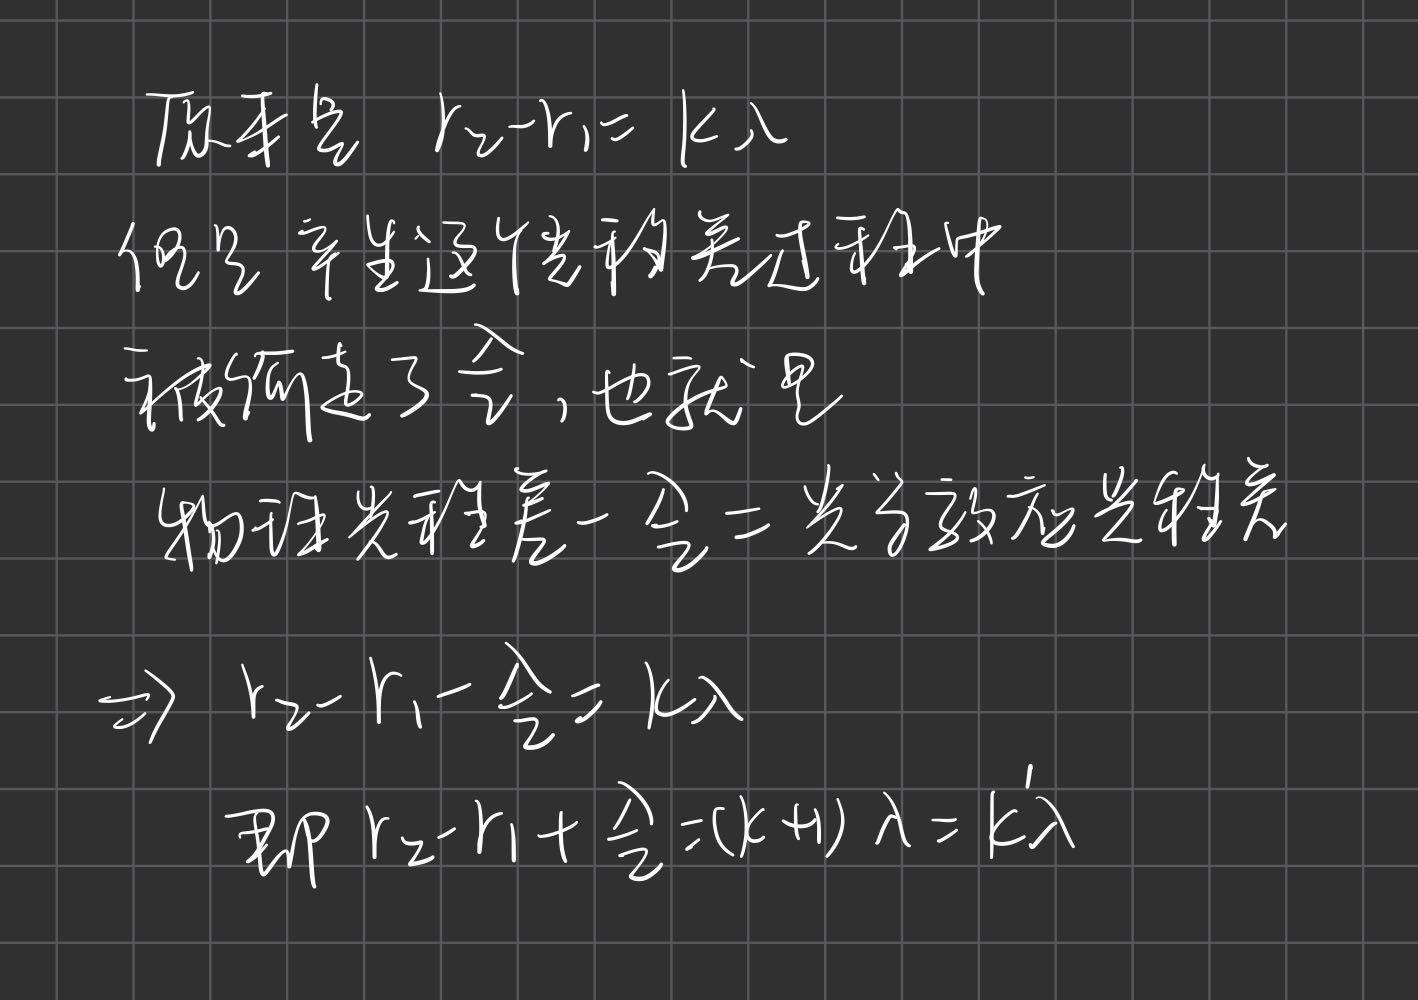 原来是 r₂-r₁=kλ
但是产生这个光程差过程中
被偷走了λ/2,也就是
物理光程差-λ/2=光学效应光程差
⇒ r₂-r₁-λ/2=kλ
即 r₂-r₁+λ/2=(k+1)λ=k'λ